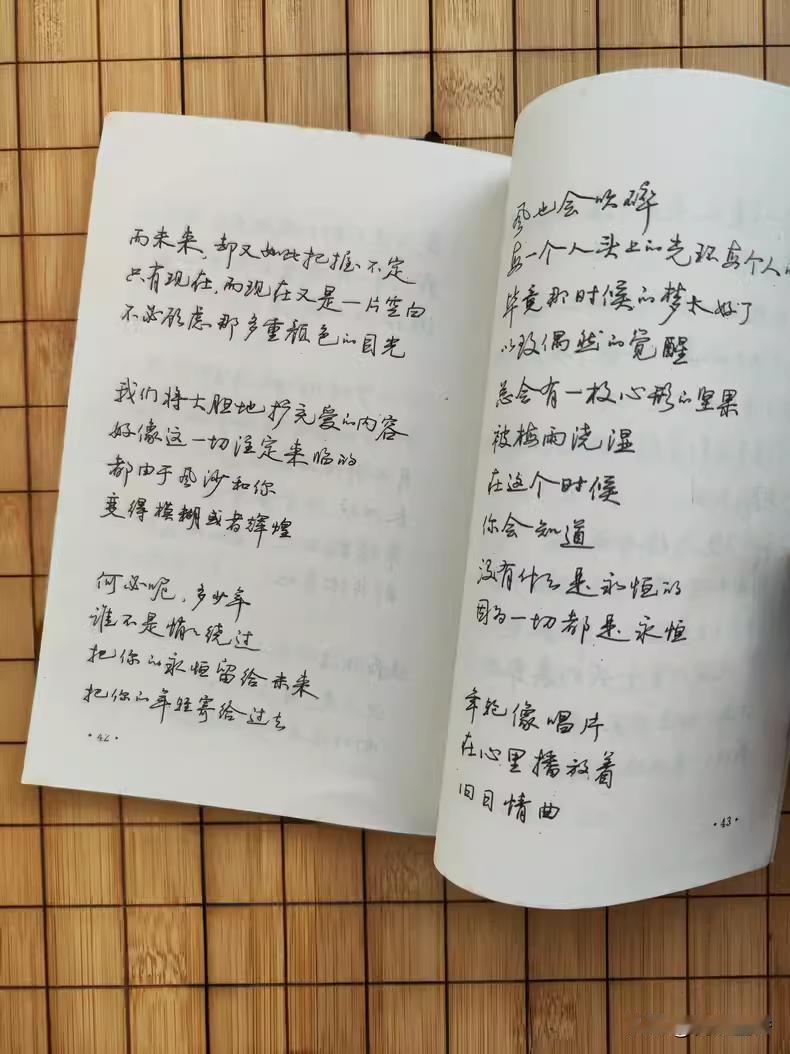 而未来，却又如此把握不定
只有现在，而现在又是一片空白
不必顾虑那多重颜色的目光
我们将大胆地扩充爱的内容
好像这一切注定来临的
都由于风沙和你
变得模糊或者辉煌
何必呢，多少年
谁不是悄悄绕过
把你的永恒留给未来
把你的年轻寄给过去
·42·
风也会吹碎
每一个人头上的光环每个人的
毕竟那时候的梦太好了
以致偶然的觉醒
总会有一枚心形的坚果
被梅雨浇湿
在这个时候
你会知道
没有什么是永恒的
因为一切都是永恒
年轮像唱片
在心里播放着
旧日情曲
·43·